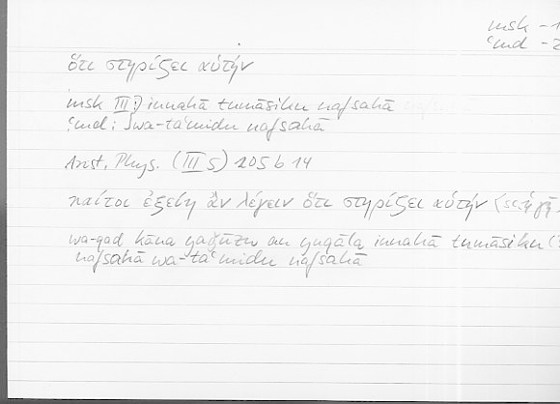 msk – 1
ʿmd – 2
ὅτι στηρίξει αὑτήν
msk III: } innahā tumāsiku nafsahā
ʿmd: } wa-taʿmidu nafsahā
Arist. Phys. (III 5) 205 b 14
καίτοι ἐξείη ἂν λέγειν ὅτι στηρίξει αὑτήν (sc. ἡ γῆ
wa-qad kāna yaǧūzu an yuqāla innahā tumāsiku
nafsahā wa-taʿmidu nafsahā